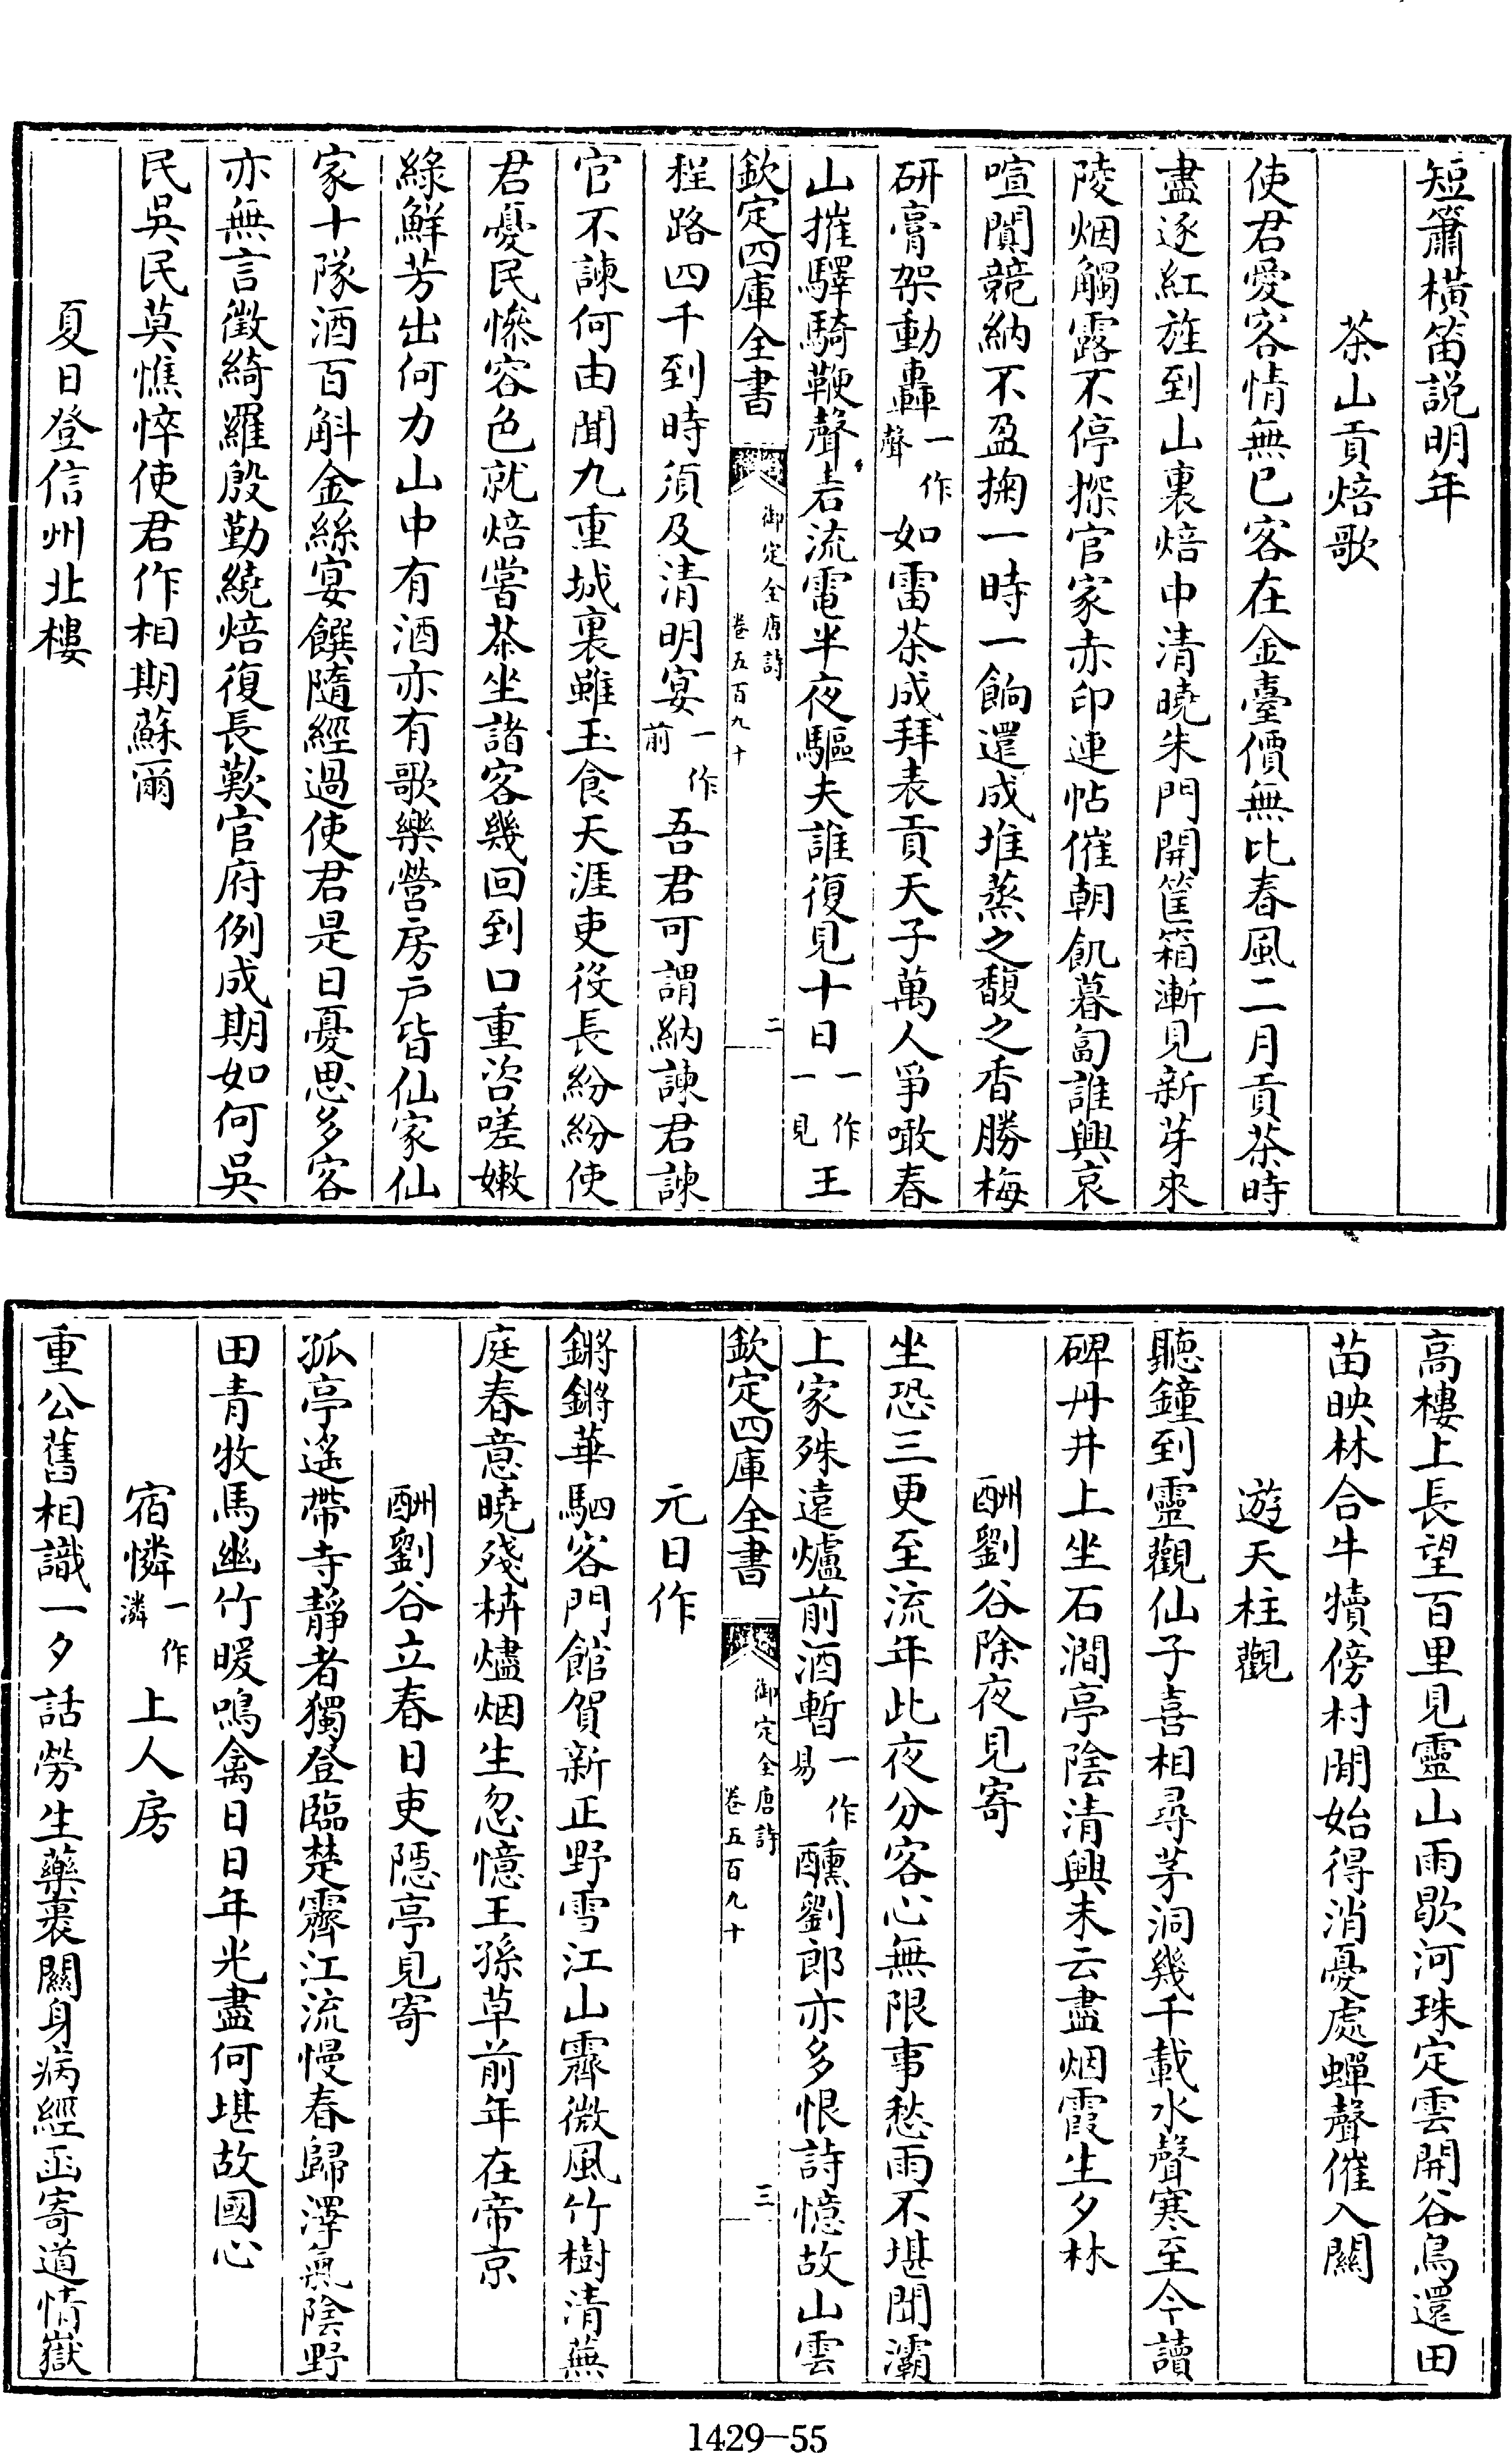 短簫橫笛説明年
茶山貢焙歌
使君愛客情無已客在金臺價無比春風二月貢茶時
盡逐紅旌到山裏焙中清曉朱門開筐箱漸見新芽來
陵烟觸露不停探官家赤印連帖催朝飢暮匐誰興哀
喧闐競納不盈掬一時一餉還成堆蒸之馥之香勝梅
研膏架動轟一作聲如雷茶成拜表貢天子萬人爭噉春
山摧驛騎鞭聲砉流電半夜驅夫誰復見十日一作一見王
欽定四庫全書 御定全唐詩卷五百九十 二
程路四千到時須及清明宴一作前吾君可謂納諫君諫
官不諫何由聞九重城裏雖玉食天涯吏役長紛紛使
君憂民慘容色就焙嘗茶坐諸客幾回到口重咨嗟嫩
綠鮮芳出何力山中有酒亦有歌樂營房戶皆仙家仙
家十隊酒百斛金絲宴饌隨經過使君是日憂思多客
亦無言徵綺羅殷勤繞焙復長歎官府例成期如何吳
民吳民莫憔悴使君作相期蘇爾
夏日登信州北樓
高樓上長望百里見靈山雨歇河珠定雲開谷鳥還田
苗映林合牛犢傍村閒始得消憂處蟬聲催入關
遊天柱觀
聽鐘到靈觀仙子喜相尋茅洞幾千載水聲寒至今讀
碑丹井上坐石澗亭陰清興未云盡烟霞生夕林
酬劉谷除夜見寄
坐恐三更至流年此夜分客心無限事愁雨不堪聞灞
上家殊遠爐前酒暫一作易醺劉郎亦多恨詩憶故山雲
欽定四庫全書 御定全唐詩卷五百九十 三
元日作
鏘鏘華駟客門館賀新正野雪江山霽微風竹樹清蕪
庭春意曉殘枿燼烟生忽憶王孫草前年在帝京
酬劉谷立春日吏隱亭見寄
孤亭遙帶寺靜者獨登臨楚霽江流慢春歸澤氣陰野
田青牧馬幽竹暖鳴禽日日年光盡何堪故國心
宿憐一作潾上人房
重公舊相識一夕話勞生藥裏關身病經函寄道情嶽
1429-55